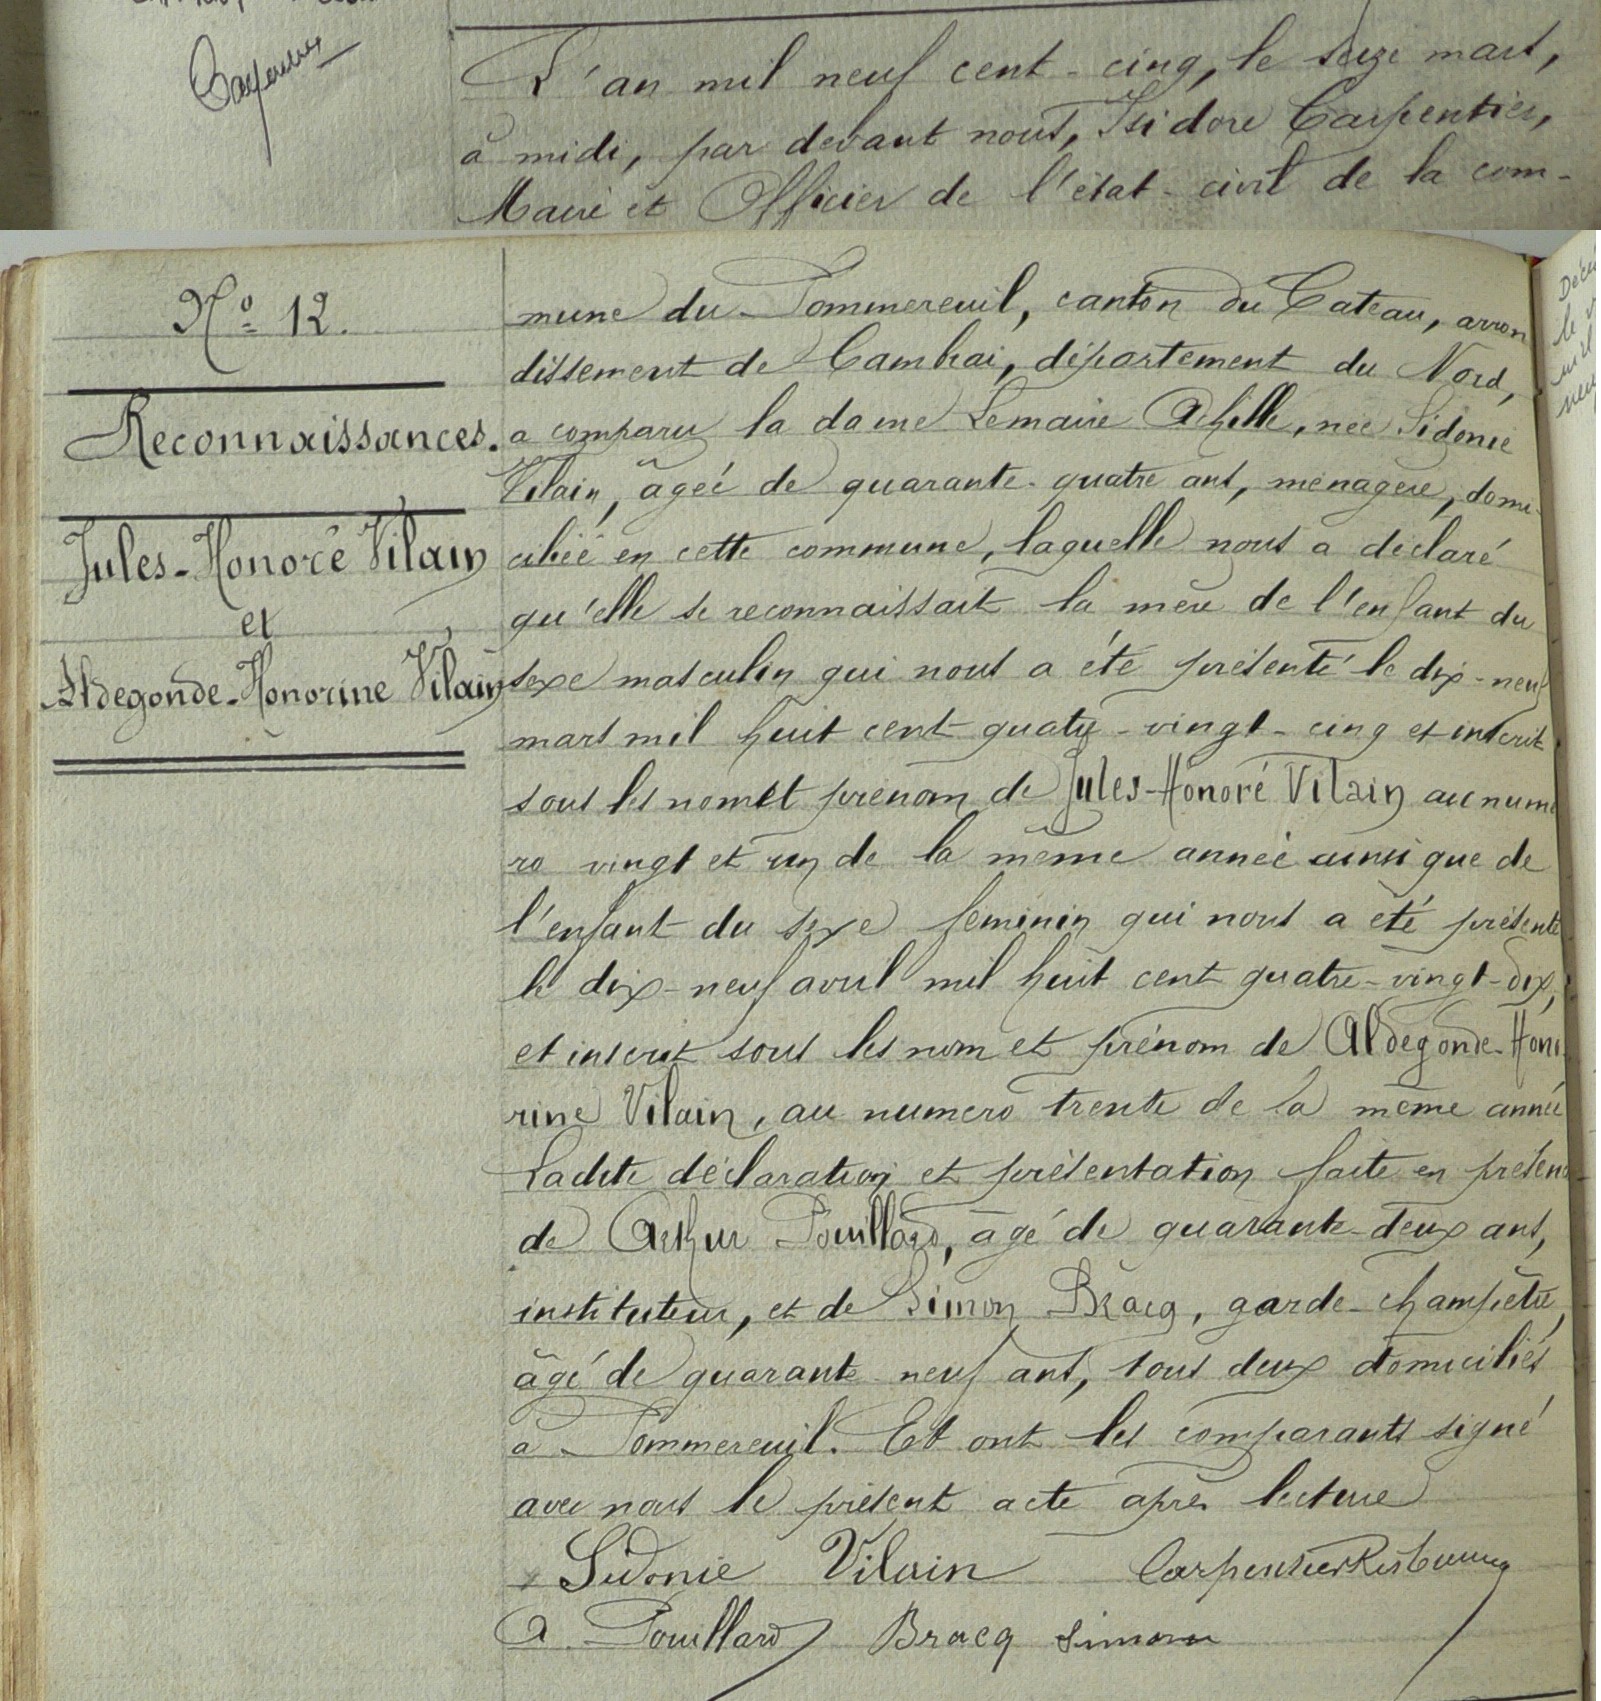 Carpentier
L'an mil neuf cent-cinq, le seize mars,
à midi, par devant nous, Isidore Carpentier,
Maire et Officier de l'état-civil de la com-
N° 12.
Reconnaissances.
Jules-Honoré Vilain
et
Aldegonde-Honorine Vilain
mune du Pommereuil, canton du Cateau, arron
dissement de Cambrai, département du Nord,
a comparu la dame Lemaire Achille, née Sidonie
Vilain, âgée de quarante-quatre ans, ménagère, domi-
ciliée en cette commune, laquelle nous a déclaré
qu'elle se reconnaissait la mère de l'enfant du
sexe masculin qui nous a été présenté le dix-neuf
mars mil huit cent quatre-vingt-cinq et inscrit
sous les nom et prénom de Jules-Honoré Vilain au numé
ro vingt et un de la même année ainsi que de
l'enfant du sexe féminin qui nous a été présenté
le dix-neuf avril mil huit cent quatre-vingt-dix,
et inscrit sous les nom et prénom de Aldegonde-Hono
rine Vilain, au numéro trente de la même année
Ladite déclaration et présentation faite en présen
de Arthur Pouillard, âgé de quarante-deux ans,
instituteur, et de Simon Bracq, garde-champêtre,
âgé de quarante-neuf ans, tous deux domiciliés
à Pommereuil. Et ont les comparants signé
avec nous le présent acte après lecture
Sidonie Vilain Carpentier
A Pouillard Bracq Simon